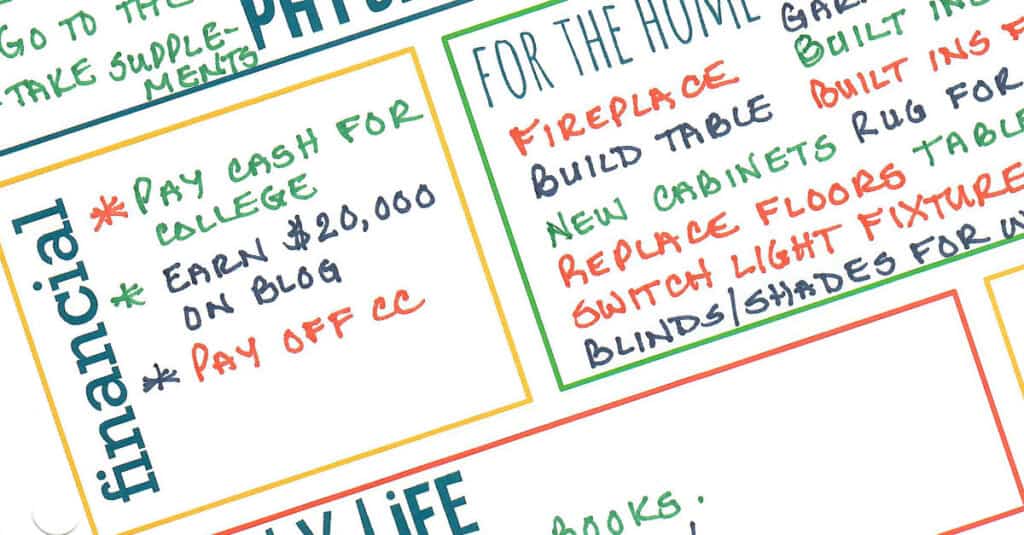 GO TO THE
TAKE SUPPLE-
MENTS
financial
* PAY CASH FOR
COLLEGE
* EARN $20,000
ON BLOG
* PAY OFF CC
FOR THE HOME
FIREPLACE
BUILD TABLE
NEW CABINETS
REPLACE FLOORS
SWITCH LIGHT FIXTURE
BLINDS/SHADES FOR
BUILT IN
BUILT INS
RUG FOR
TABLE
LiFE
BOOKS.